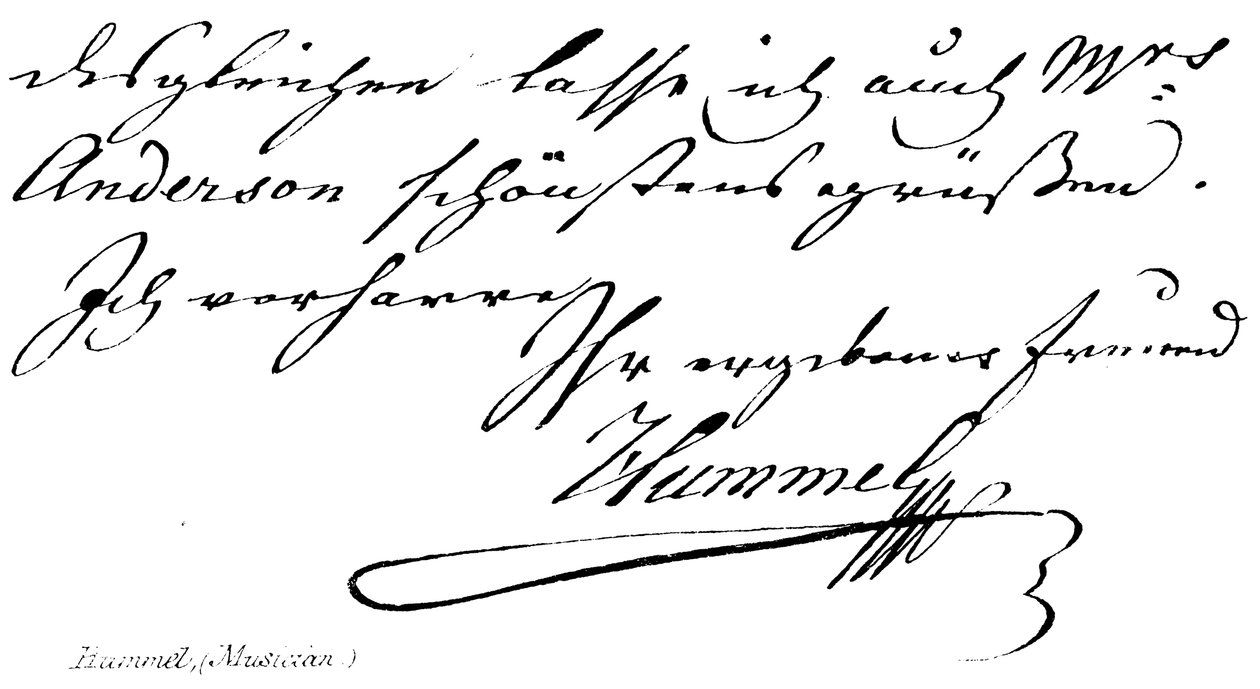 desgleichen lasse ich auch Mrs
Anderson schönstens grüßen.
Ich verharre
Ihr ergebener Freund
Hummel
Hummel, (Musician.)